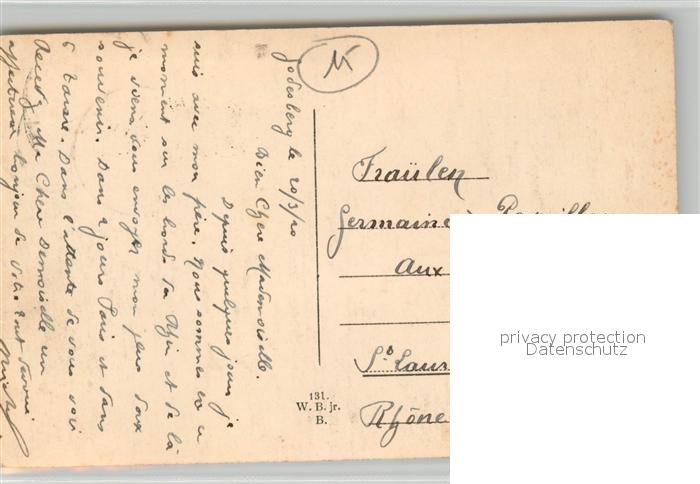 Godesberg le 20/3/20
Bien Chère Mademoiselle.
Depuis quelques jours je
suis avec mon père. Nous sommes en ce
moment sur les bords du Rhin et de là
je viens vous envoyer mon plus doux
souvenir. Dans 2 jours Paris et dans
6 Tarare. Dans l'attente de vous voir
Recevez Ma Chère Demoiselle un
affectueux bonjour de votre tout
15
Fraülen
Germaine
Aux
St Laur
Rhône
131.
W. B. jr.
B.
privacy protection
Datenschutz